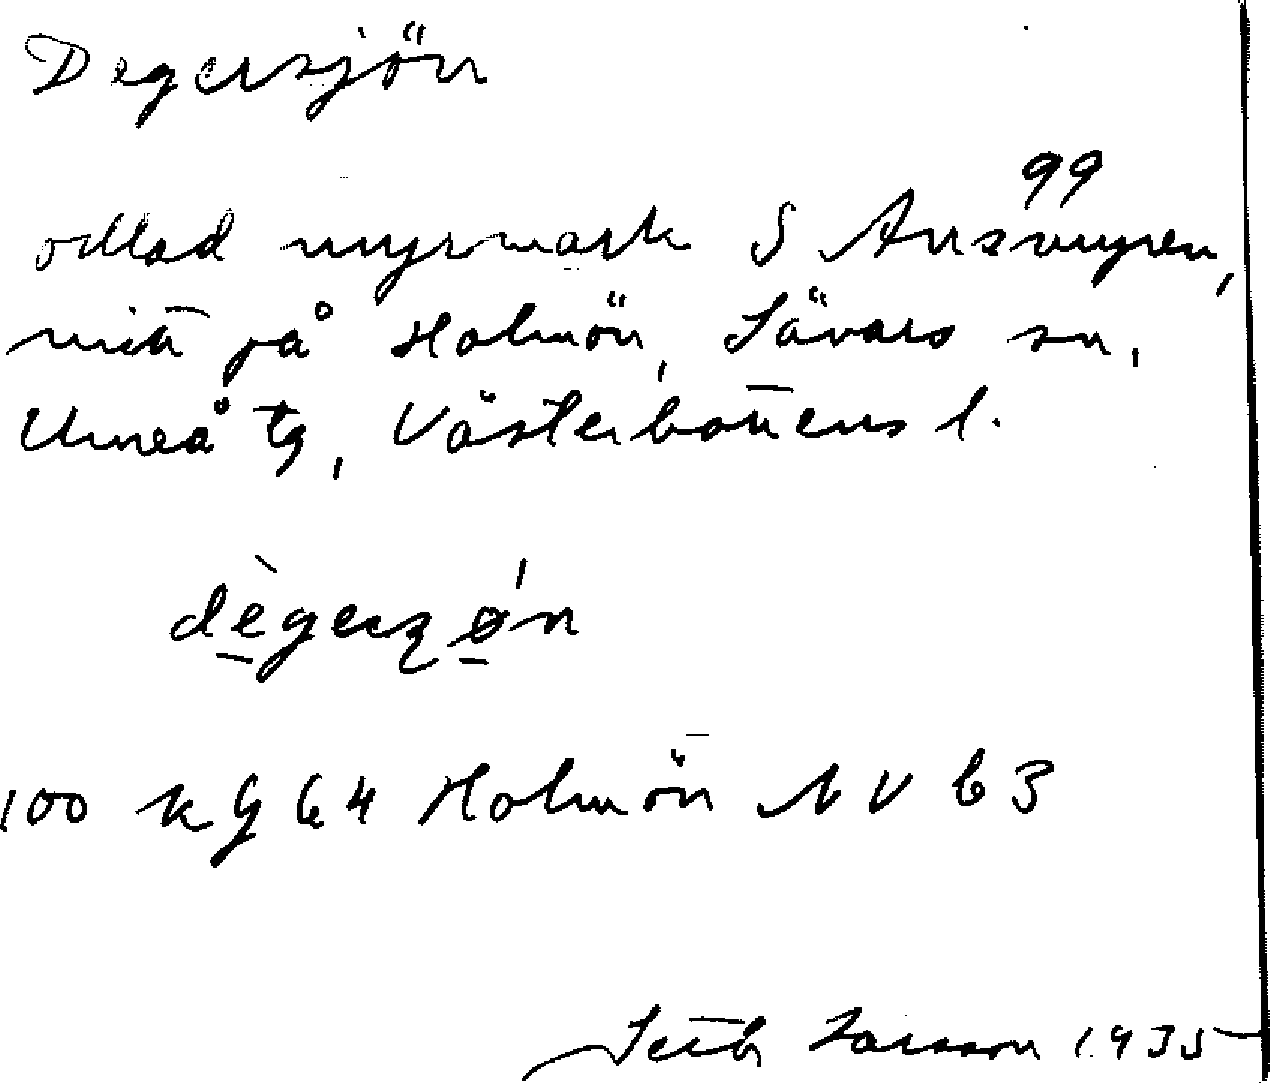 Degersjön
99
odlad myrmark S Ansmyren,
mitt på Holmön, Sävars sn,
Umeå tg, Västerbottens l.
dègerʂǿn
100 kg 64 Holmön NV b3
Seth Larsson 1935